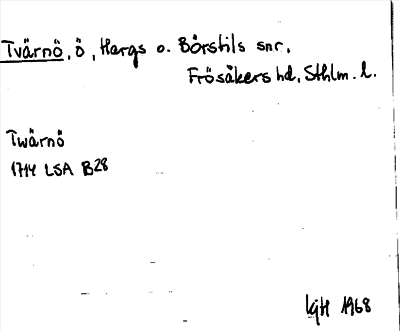 Tvärnö, ö, Hargs o. Börstils snr.
Frösåkers hd, Sthlm. l.
Twärnö
1714 LSA B28
KjH 1968